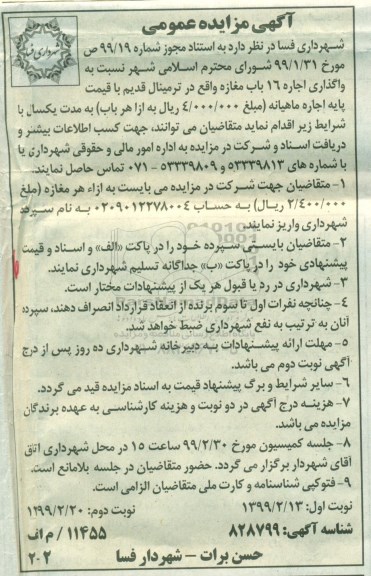 آگهی مزایده عمومی
شهرداری فسا در نظر دارد به استناد مجوز شماره ۹۹/۱۹ ص
مورخ ۹۹/۱/۳۱ شورای محترم اسلامی شهر نسبت به
واگذاری اجاره ۱۶ باب مغازه واقع در ترمینال قدیم با قیمت
پایه اجاره ماهیانه (مبلغ ۴/۰۰۰/۰۰۰ ریال به ازا هر باب) به مدت یکسال با
شرایط زیر اقدام نماید متقاضیان می توانند، جهت کسب اطلاعات بیشتر و
دریافت اسناد و شرکت در مزایده به اداره امور مالی و حقوقی شهرداری یا
با شماره های ۵۳۳۳۹۸۱۳ و ۵۳۳۳۹۸۰۹ - ۰۷۱ تماس حاصل نمایند.
۱- متقاضیان جهت شرکت در مزایده می بایست به ازاء هر مغازه (مبلغ
۲/۴۰۰/۰۰۰ ریال) به حساب ۰۲۰۹۰۱۲۲۷۸۰۰۴ به نام سپرده
شهرداری واریز نمایند.
۲- متقاضیان بایستی سپرده خود را در پاکت «الف» و اسناد و قیمت
پیشنهادی خود را در پاکت «ب» جداگانه تسلیم شهرداری نمایند.
۳- شهرداری در رد یا قبول هر یک از پیشنهادات مختار است.
۴- چنانچه نفرات اول تا سوم برنده از انعقاد قرارداد انصراف دهند، سپرده
آنان به ترتیب به نفع شهرداری ضبط خواهد شد.
۵- مهلت ارائه پیشنهادات به دبیرخانه شهرداری ده روز پس از درج
آگهی نوبت دوم می باشد.
۶- سایر شرایط و برگ پیشنهاد قیمت به اسناد مزایده قید می گردد.
۷- هزینه درج آگهی در دو نوبت و هزینه کارشناسی به عهده برندگان
مزایده می باشد.
۸- جلسه کمیسیون مورخ ۹۹/۲/۳۰ ساعت ۱۵ در محل شهرداری اتاق
آقای شهردار برگزار می گردد. حضور متقاضیان در جلسه بلامانع است.
۹- فتوکپی شناسنامه و کارت ملی متقاضیان الزامی است.
نوبت اول: ۱۳۹۹/۲/۱۳ نوبت دوم: ۱۳۹۹/۲/۲۰
شناسه آگهی: ۸۲۸۷۹۹ ۱۱۴۵۵ / م الف
حسن برات - شهردار فسا ۲-۲